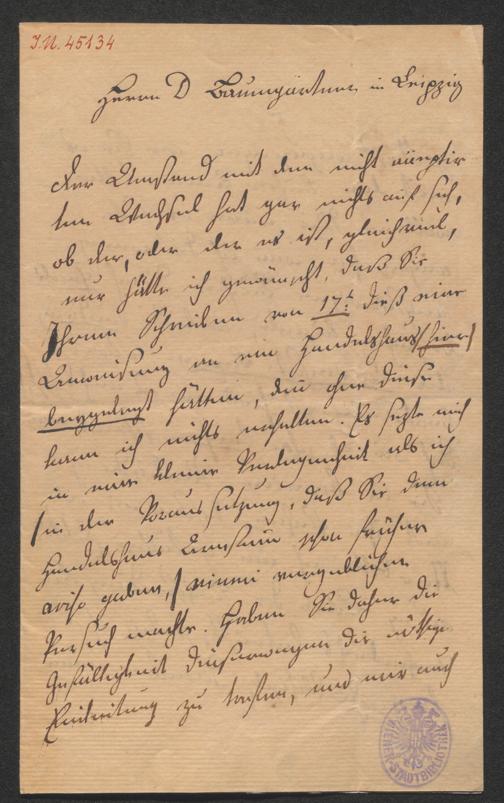 I.N. 45134
Herrn D Baumgärtner in Leipzig
Der Umstand mit dem nicht acceptir
ten Wechsel hat gar nichts auf sich,
ob der, oder der es ist, gleichviel,
nur hätte ich gewünscht, daß Sie
Ihrem Schreiben vom 17t. dieß eine
Anweisung an ein Handelshaus (hier)
beygelegt hätten, den ohne diese
kann ich nichts erhalten. Es sezte mich
in eine kleine Verlegenheit als ich
/ in der Voraussetzung, daß Sie dem
Handelshaus schon früher
aviso gaben, / einen vergeblichen
Versuch machte. Haben Sie daher die
Gefälligkeit dieserwegen die nöthige
Einleitung zu treffen, und mir auch
WIENER STADTBIBLIOTHEK